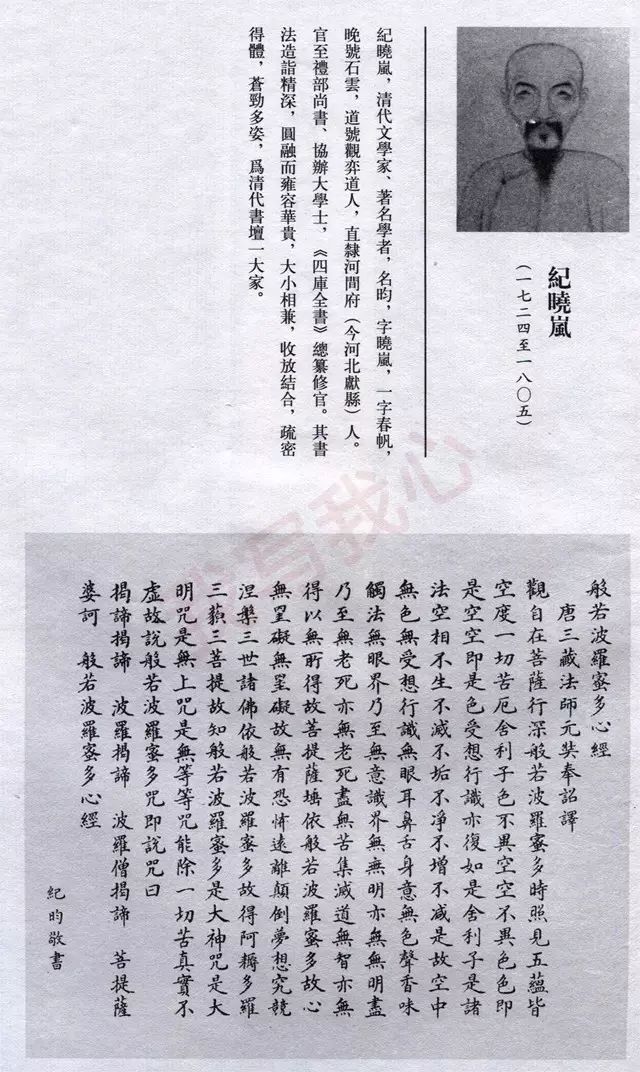 紀曉嵐
(一七二四至一八〇五)
紀曉嵐,清代文學家、著名學者,名昀,字曉嵐,一字春帆,
晚號石雲,道號觀弈道人,直隸河間府(今河北獻縣)人。
官至禮部尚書、協辦大學士,《四庫全書》總纂修官。其書
法造詣精深,圓融而雍容華貴,大小相兼,收放結合,疏密
得體,蒼勁多姿,爲清代書壇一大家。
写我心
般若波羅蜜多心經
唐三藏法師元奘奉詔譯
觀自在菩薩行深般若波羅蜜多時照見五蘊皆
空度一切苦厄舍利子色不異空空不異色色即
是空空即是色受想行識亦復如是舍利子是諸
法空相不生不滅不垢不净不增不減是故空中
無色無受想行識無眼耳鼻舌身意無色聲香味
觸法無眼界乃至無意識界無無明亦無無明盡
乃至無老死亦無老死盡無苦集滅道無智亦無
得以無所得故菩提薩埵依般若波羅蜜多故心
無罣礙無罣礙故無有恐怖遠離顛倒夢想究竟
涅槃三世諸佛依般若波羅蜜多故得阿耨多羅
三藐三菩提故知般若波羅蜜多是大神咒是大
明咒是無上咒是無等等咒能除一切苦真實不
虛故說般若波羅蜜多咒即說咒曰
揭諦揭諦 波羅揭諦 波羅僧揭諦 菩提薩
婆訶 般若波羅蜜多心經
紀昀敬書